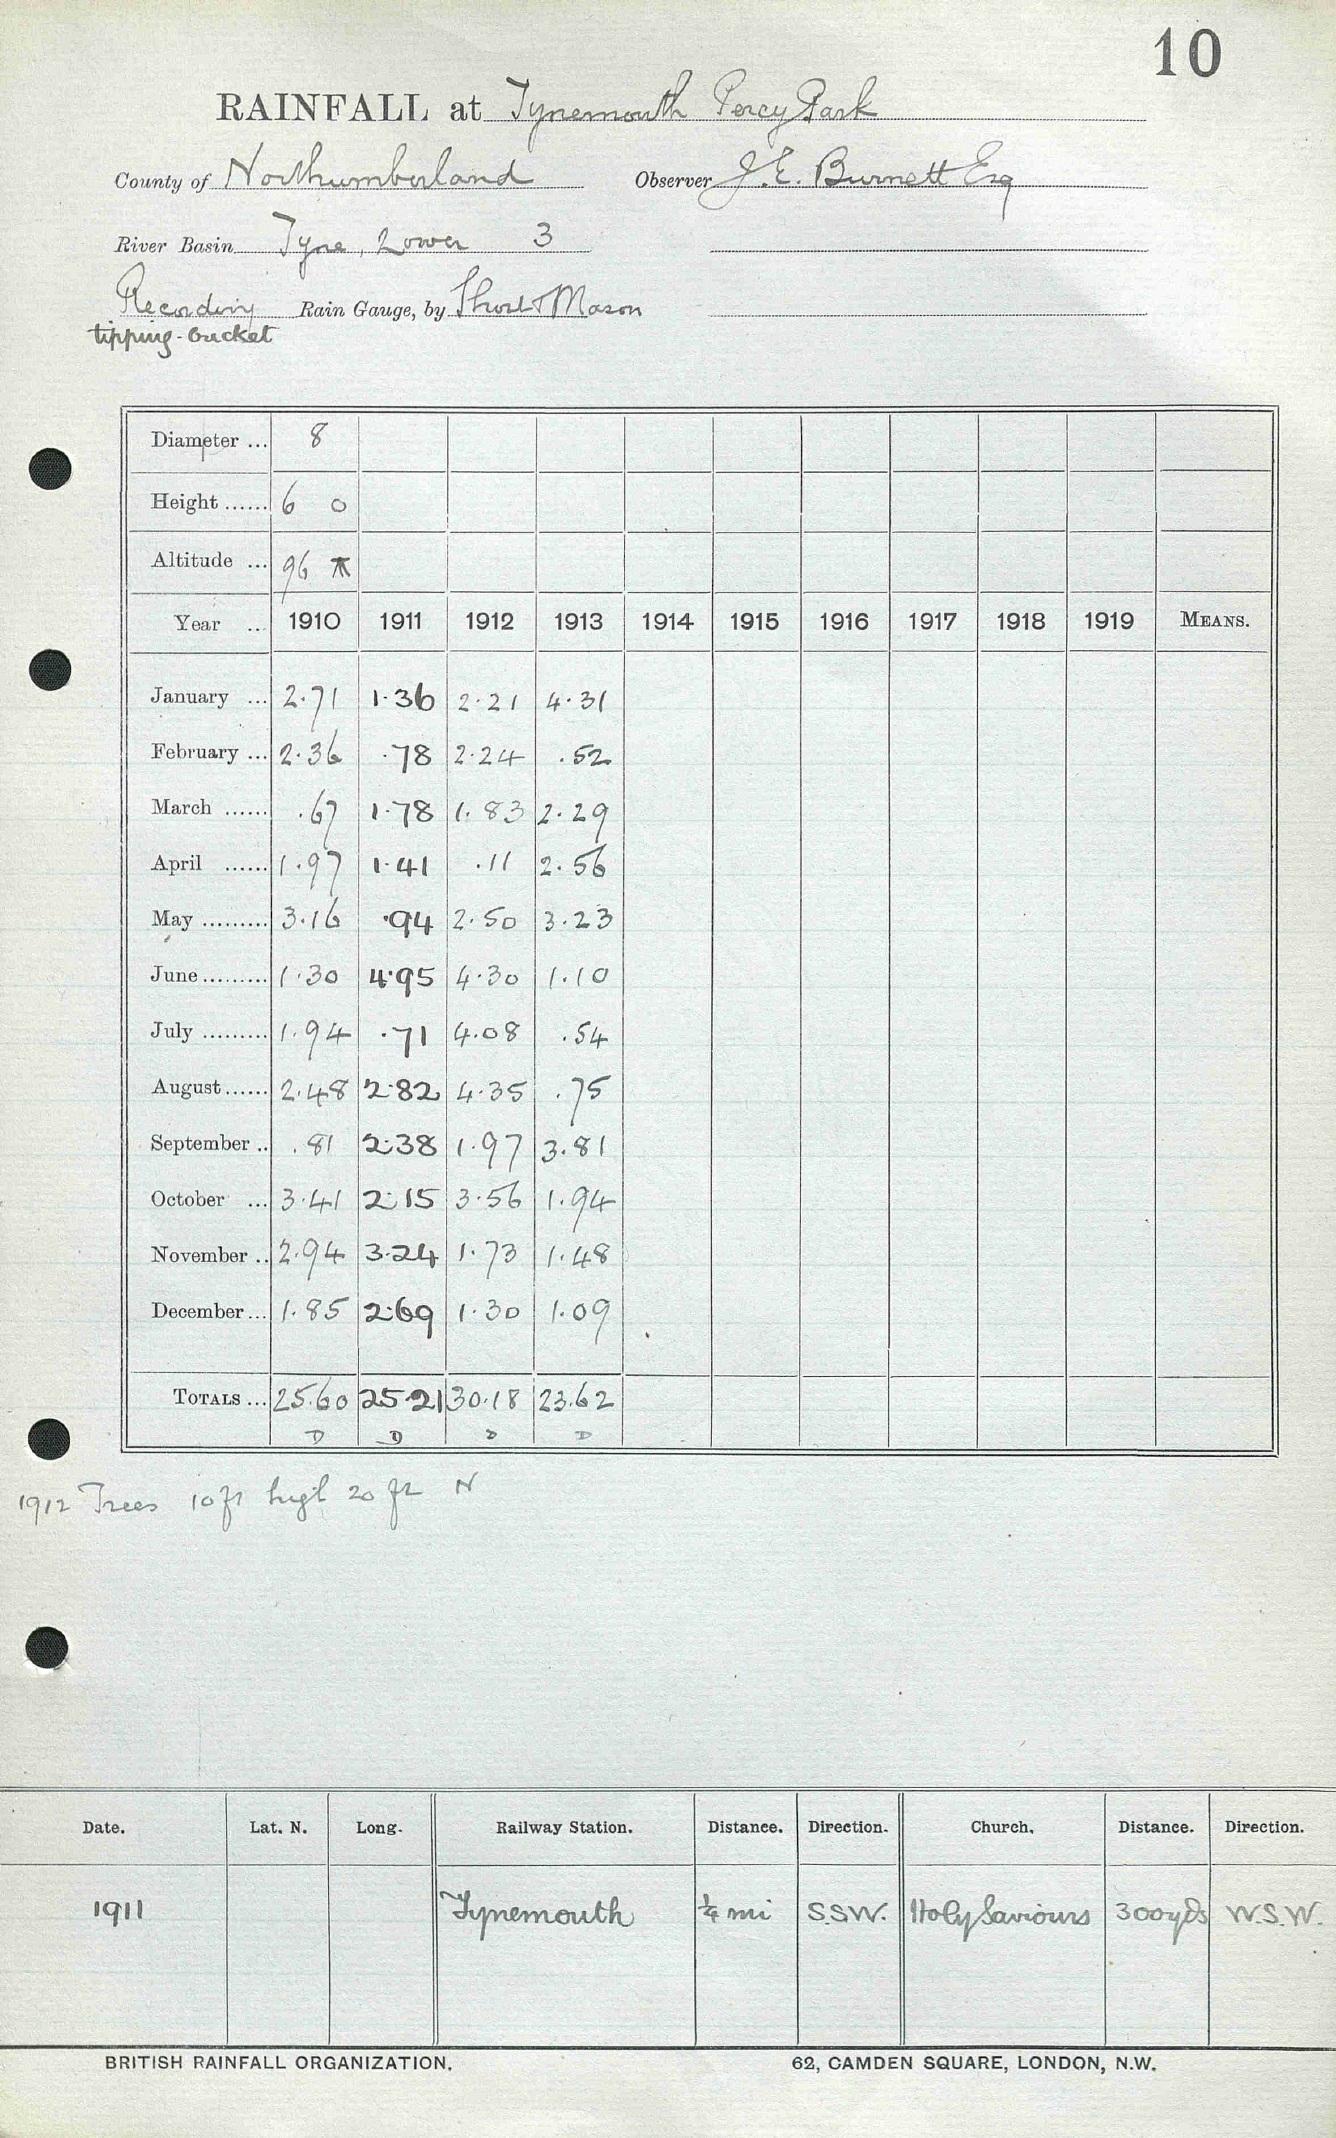 10
RAINFALL at Tynemouth Percy Park
County of Northumberland Observer J. E. Burnett Esq
River Basin Tyne, Lower 3
Recording Rain Gauge, by Short & Mason
tipping-bucket
Diameter ... 8
Height ...... 6 0
Altitude ... 96
Year .. 1910 1911 1912 1913 1914 1915 1916 1917 1918 1919 MEANS.
January ... 2.71 1.36 2.21 4.31
February ... 2.36 .78 2.24 .52
March ...... .67 1.78 1.83 2.29
April ...... 1.97 1.41 .11 2.56
May ......... 3.16 .94 2.50 3.23
June ......... 1.30 4.95 4.30 1.10
July ......... 1.94 .71 4.08 .54
August ...... 2.48 2.82 4.35 .75
September .. .81 2.38 1.97 3.81
October ... 3.41 2.15 3.56 1.94
November .. 2.94 3.24 1.73 1.48
December ... 1.85 2.69 1.30 1.09
TOTALS ... 25.60 25.21 30.18 23.62
D D D D
1912 Trees 10 ft high 20 ft N
Date. Lat. N. Long. Railway Station. Distance. Direction. Church. Distance. Direction.
1911 Tynemouth ¼ mi S.S.W. Holy Saviours 300 yds W.S.W.
BRITISH RAINFALL ORGANIZATION. 62, CAMDEN SQUARE, LONDON, N.W.